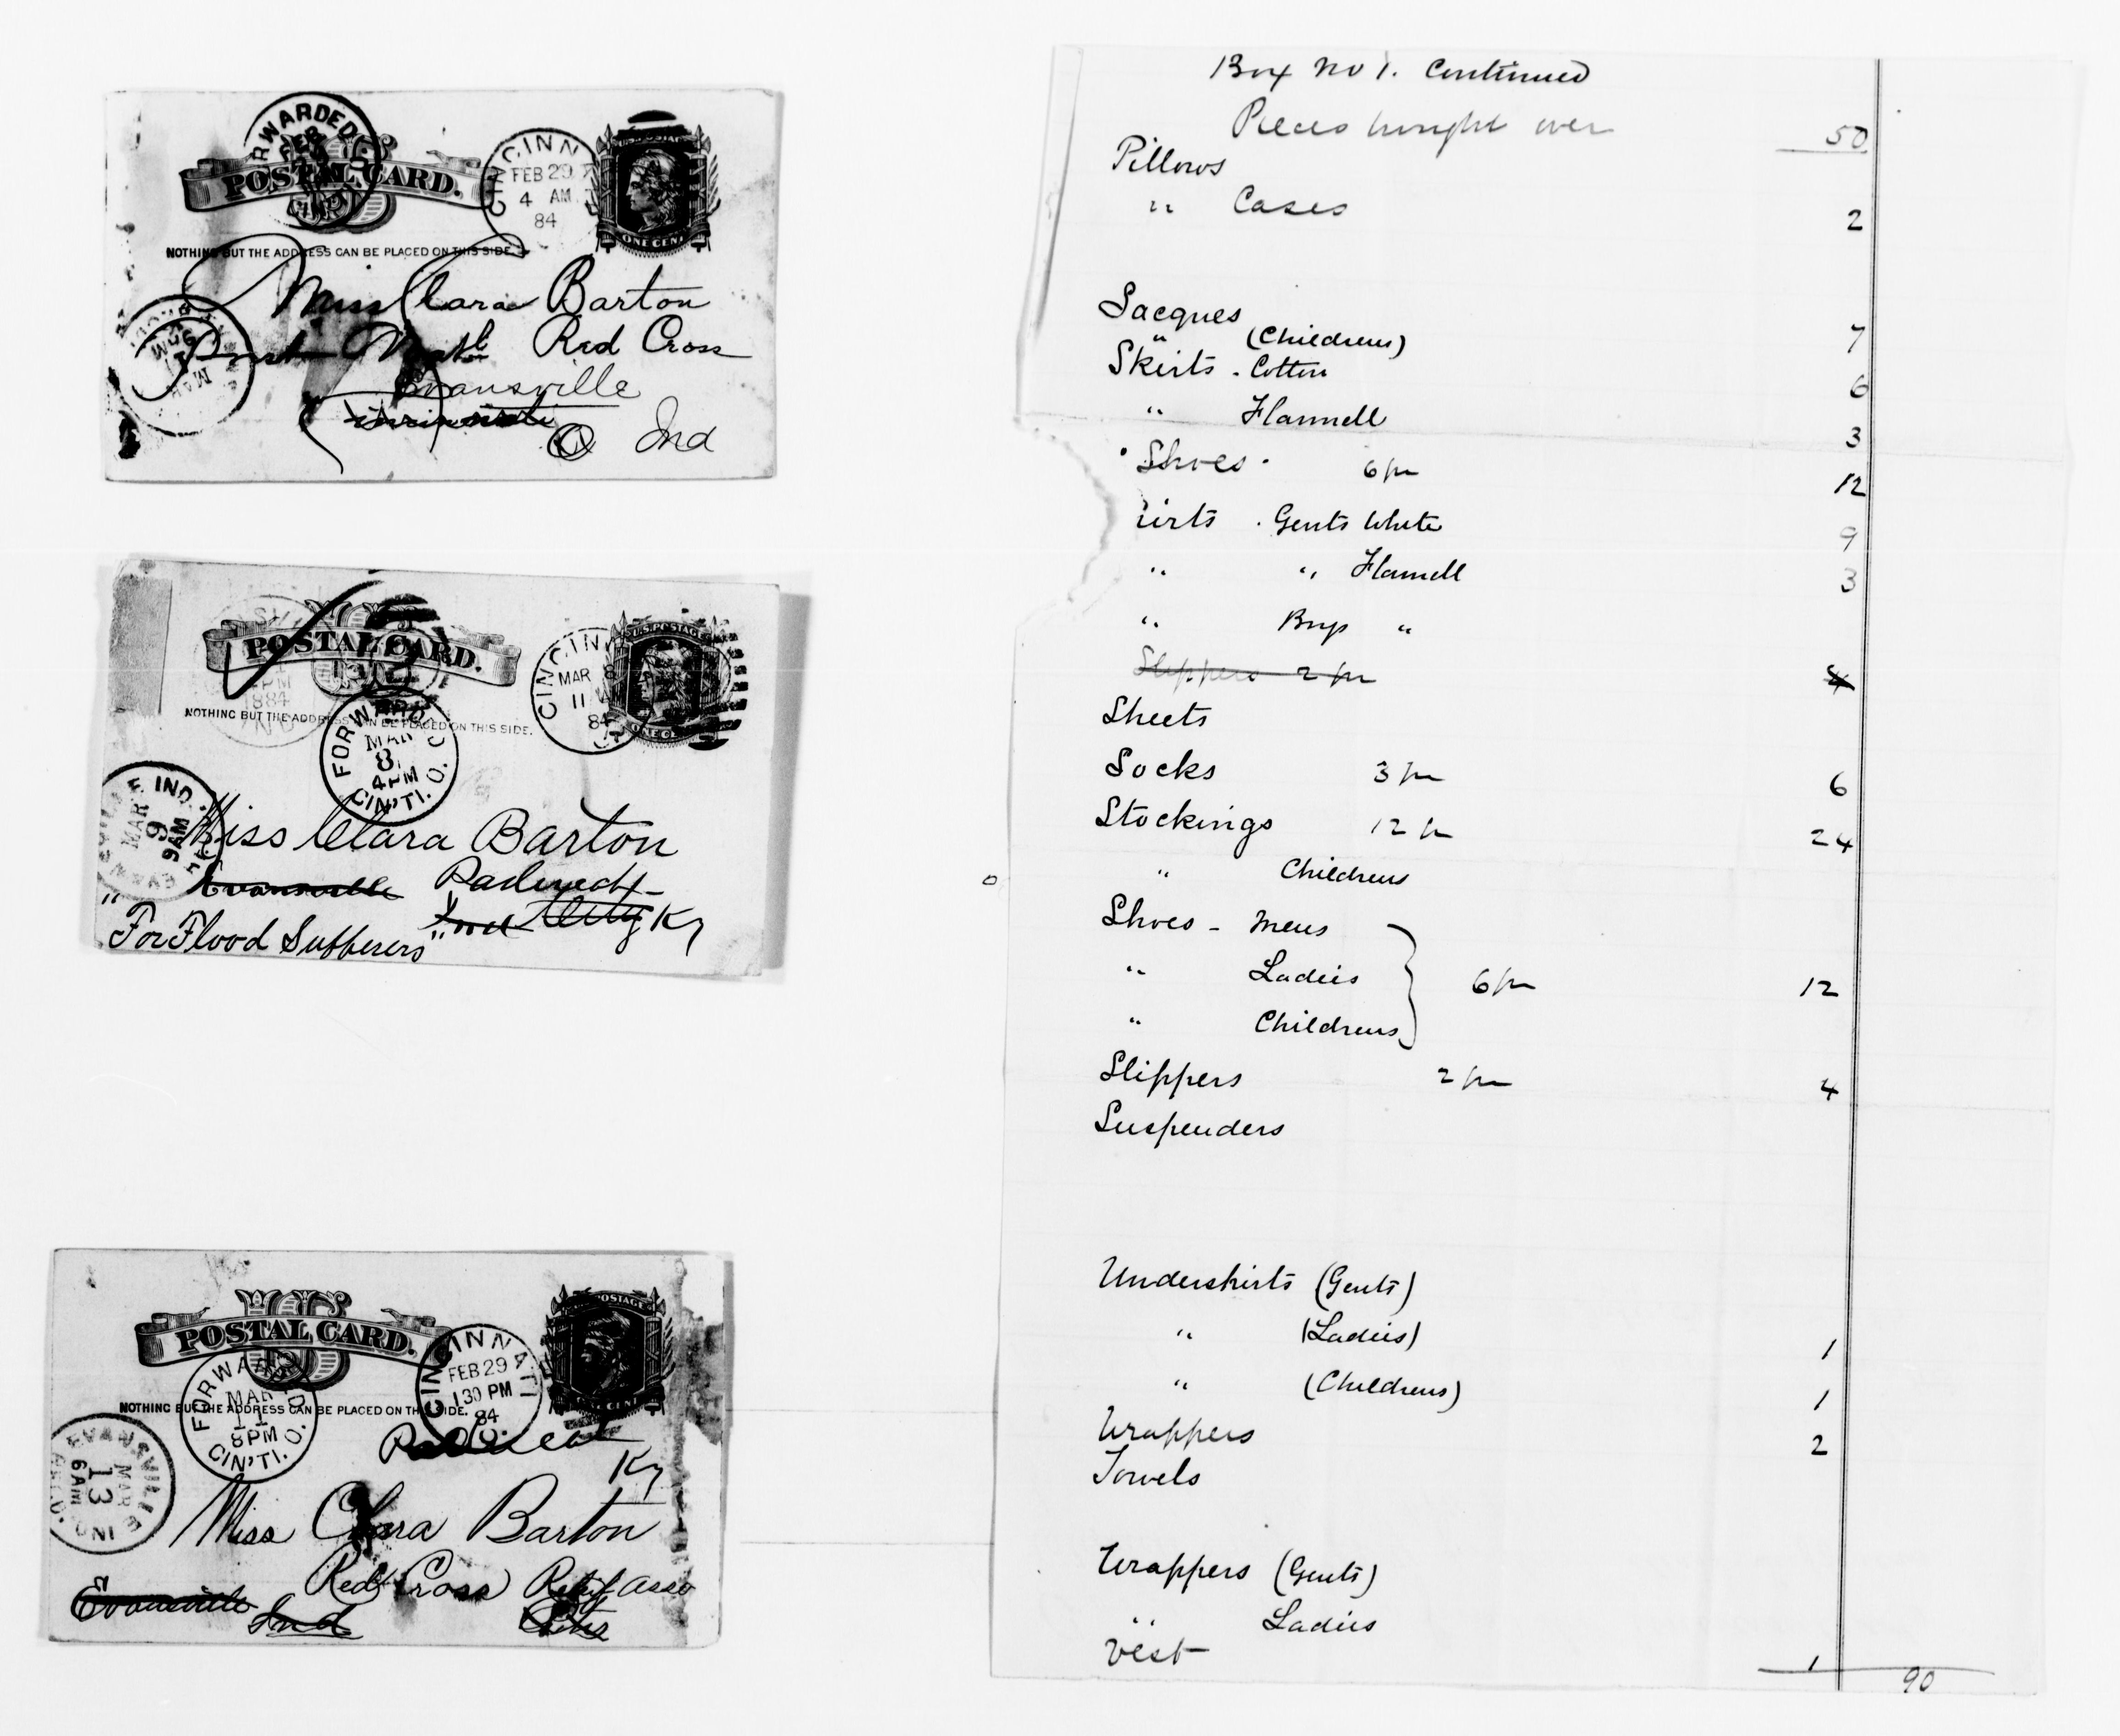 FORWARDED
FEB
POSTAL CARD.
CINCINNATI
FEB 29
4 AM
84
ONE CENT
NOTHING BUT THE ADDRESS CAN BE PLACED ON THIS SIDE.
Miss Clara Barton
Prest Natl Red Cross
Evansville
Cincinnati
O Ind
MAR
POSTAL CARD.
U.S. POSTAGE
CINCINNATI
MAR 8
11
84
ONE CENT
4 PM
1884
IND
NOTHING BUT THE ADDRESS CAN BE PLACED ON THIS SIDE.
FORWARDED
MAR
8
4 PM
CIN'TI. O.
EVANSVILLE IND.
MAR
9
9 AM
Miss Clara Barton
Evansville Paducah
Ind Ky
"For Flood Sufferers"
POSTAL CARD.
POSTAGE
CINCINNATI
FEB 29
130 PM
84
O.
ONE CENT
FORWARDED
MAR
11
8 PM
CIN'TI. O.
NOTHING BUT THE ADDRESS CAN BE PLACED ON THIS SIDE.
EVANSVILLE IND.
MAR
13
6 AM
Paducah
Ky
Miss Clara Barton
Red Cross Relief Asso
Evansville
Ind
Box No 1. Continued
Pieces brought over 50
Pillows
" Cases 2
Sacques
" (Childrens) 7
Skirts - Cotton 6
" Flannell 3
Shoes 6 pr 12
irts Gents White 9
" " Flannell 3
" Boys "
Slippers 2 pr 4
Sheets
Socks 3 pr 6
Stockings 12 pr 24
" Childrens
Shoes - Mens
" Ladies 6 pr 12
" Childrens
Slippers 2 pr 4
Suspenders
Undershirts (Gents)
" (Ladies) 1
" (Childrens) 1
Wrappers 2
Towels
Wrappers (Gents)
" Ladies
Vest 1
90